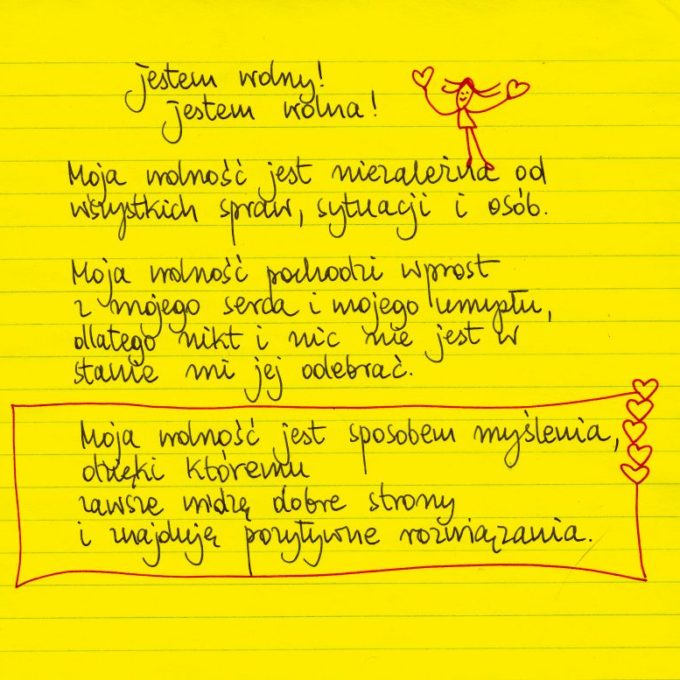 jestem wolny!
jestem wolna!
Moja wolność jest niezależna od
wszystkich spraw, sytuacji i osób.
Moja wolność pochodzi wprost
z mojego serca i mojego umysłu,
dlatego nikt i nic nie jest w
stanie mi jej odebrać.
Moja wolność jest sposobem myślenia,
dzięki któremu
zawsze widzę dobre strony
i znajduję pozytywne rozwiązania.